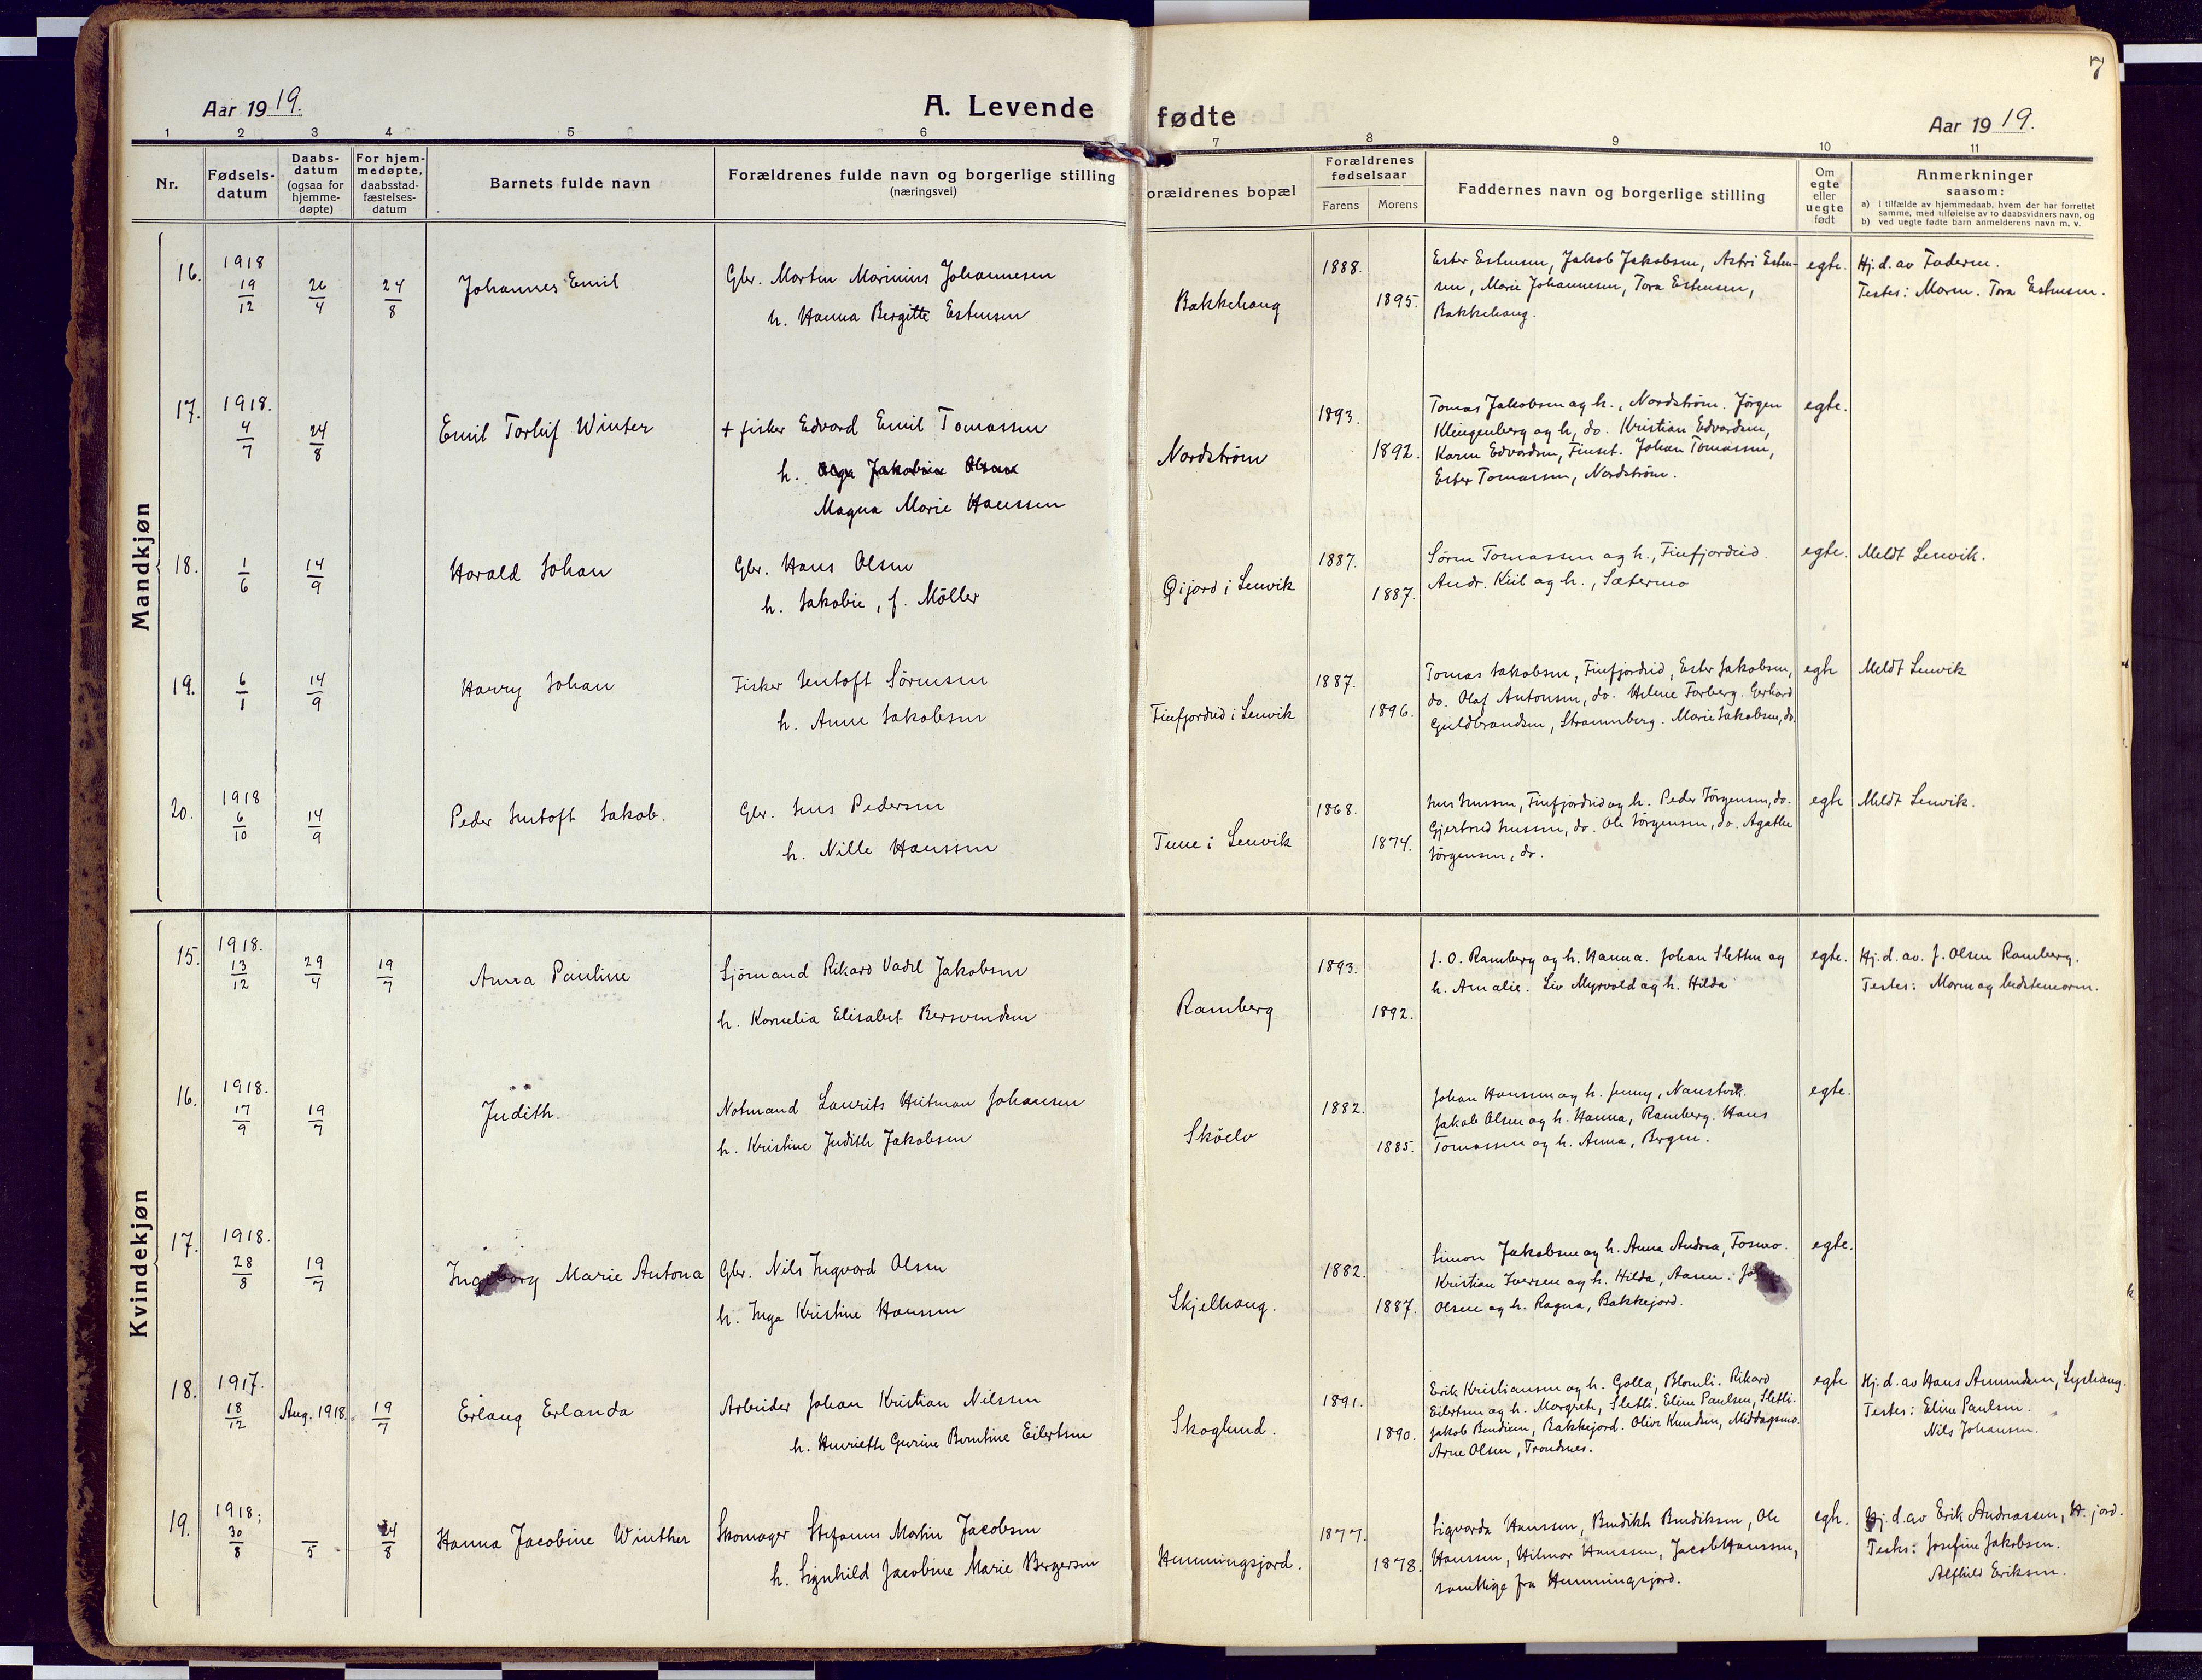 7
Aar 1919.
A. Levende
fødte
Aar 1919.
1 2 3 4 5 6 7 8 9 10 11
Nr.
Fødsels-
datum
Daabs-
datum
(ogsaa for
hjemme-
døpte)
For hjem-
medøpte,
daabsstad-
fæstelses-
datum
Barnets fulde navn
Forældrenes fulde navn og borgerlige stilling
(næringsvei)
orældrenes bopæl
Forældrenes
fødselsaar
Farens
Morens
Faddernes navn og borgerlige stilling
Om
egte
eller
uegte
født
Anmerkninger
saasom:
a) i tilfælde av hjemmedaab, hvem der har forrettet
samme, med tilføielse av to daabsvidners navn, og
b) ved uegte fødte barn anmelderens navn m. v.
Mandkjøn
16.
1918
19/12
26/4
24/8
Johannes Emil
Gbr. Morten Marinius Johannesen
h. Hanna Bergitte Estensen
Bakkehaug
1888.
1895.
Ester Estensen, Jakob Jakobsen, Astri Esten-
sen, Marie Johannesen, Tora Estensen,
Bakkehaug.
egte.
Hj. d. av Faderen.
Testes: Moren. Tora Estensen.
17.
1918.
4/7
24/8
Emil Torleif Winter
+ fisker Edvard Emil Tomassen
h. Olga Jakobine Olsen
Magna Marie Hanssen
Nordstrøm
1893.
1892.
Tomas Jakobsen og h., Nordstrøm. Jørgen
Klingenberg og h, do. Kristian Edvardsen,
Karen Edvardsen, Finset. Johan Tomassen,
Ester Tomassen, Nordstrøm.
egte.
18.
1/6
14/9
Harald Johan
Gbr. Hans Olsen
h. Jakobie, f. Möller
Øijord i Lenvik
1887.
1887.
Sören Tomassen og h., Finfjordeid.
Andr. Kiil og h., Sætermo
egte.
Meldt Lenvik.
19.
6/1
14/9
Harry Johan
Fisker Jentoft Sörensen
h. Anne Jakobsen
Finfjordeid i Lenvik
1887.
1896.
Tomas Jakobsen, Finfjordeid, Ester Jakobsen,
do. Olaf Antonsen, do. Helene Farberg. Gerhard
Guldbrandsen, Strømmberg. Marie Jakobsen, do.
egte
Meldt Lenvik
20.
1918
6/10
14/9
Peder Jentoft Jakob.
Gbr. Jens Pedersen
h. Nille Hanssen
Tune i Lenvik
1868.
1874.
Jens Jenssen, Finfjordeid og h. Peder Jörgensen, do.
Gjertrud Jenssen, do. Ole Jörgensen, do. Agathe
Jörgensen, do.
egte
Meldt Lenvik.
Kvindekjøn
15.
1918.
13/12
29/4
19/7
Anna Pauline
Sjömand Rikard Vadel Jakobsen
h. Kornelia Elisabet Bersvendsen
Ramberg
1893.
1892.
J. O. Ramberg og h. Hanna. Johan Sletten og
h. Amalie. Liv Myrvold og h. Hilda
egte.
Hj. d. av. J. Olsen Ramberg.
Testes: Moren og bedstemoren.
16.
1918.
17/9
19/7
Judith.
Notmand Laurits Hutman Johansen
h. Kristine Judith Jakobsen
Sköelv
1882.
1885.
Johan Hanssen og h. Jenny, Naustvik.
Jakob Olsen og h. Hanna, Ramberg. Hans
Tomassen og h. Anna, Bergen.
egte.
17.
1918.
28/8
19/7
Ingeborg Marie Antona
Gbr. Nils Ingvard Olsen
h. Inga Kristine Hanssen
Skjelhaug.
1882.
1887.
Simon Jakobsen og h. Anna Andrea, Fosmo.
Kristian Iversen og h. Hilda, Aasen.
Olsen og h. Ragna, Bakkejord.
egte.
18.
1917.
18/12
Aug. 1918.
19/7
Erlaug Erlanda
Arbeider Johan Kristian Nilssen
h. Henriette Gurine Berntine Eilertsen
Skoglund.
1891.
1890.
Erik Kristiansen og h. Golla, Blomli. Rikard
Eilertsen og h. Margrete, Sletli. Eline Paulsen, Sletli.
Jakob Bendiksen, Bakkejord. Olive Knudsen, Middagsmo.
Arne Olsen, Trondnes.
egte
Hj. d. av Hans Amundsen, Lyshaug.
Testes: Eline Paulsen.
Nils Johansen.
19.
1918;
30/8
/5
24/8
Hanna Jacobine Winther
Skomager Stefanus Martin Jacobsen
h. Signhild Jacobine Marie Bergersen
Hemmingsjord.
1877.
1878.
Sigvarda Hanssen, Bendikte Bendiksen, Ole
Hanssen, Hilmar Hanssen, Jacob Hanssen,
samtlige fra Hemmingsjord.
egte.
Hj. d. av Erik Andreassen, H. jord.
Testes: Josefine Jakobsen.
Alfhild Eriksen.